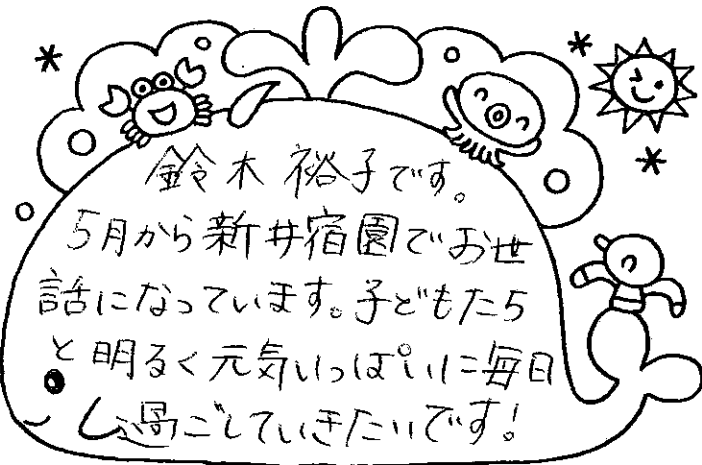 鈴木 裕子です。
5月から新井宿園でお世
話になっています。子どもたち
と明るく元気いっぱいに毎日
過ごしていきたいです!